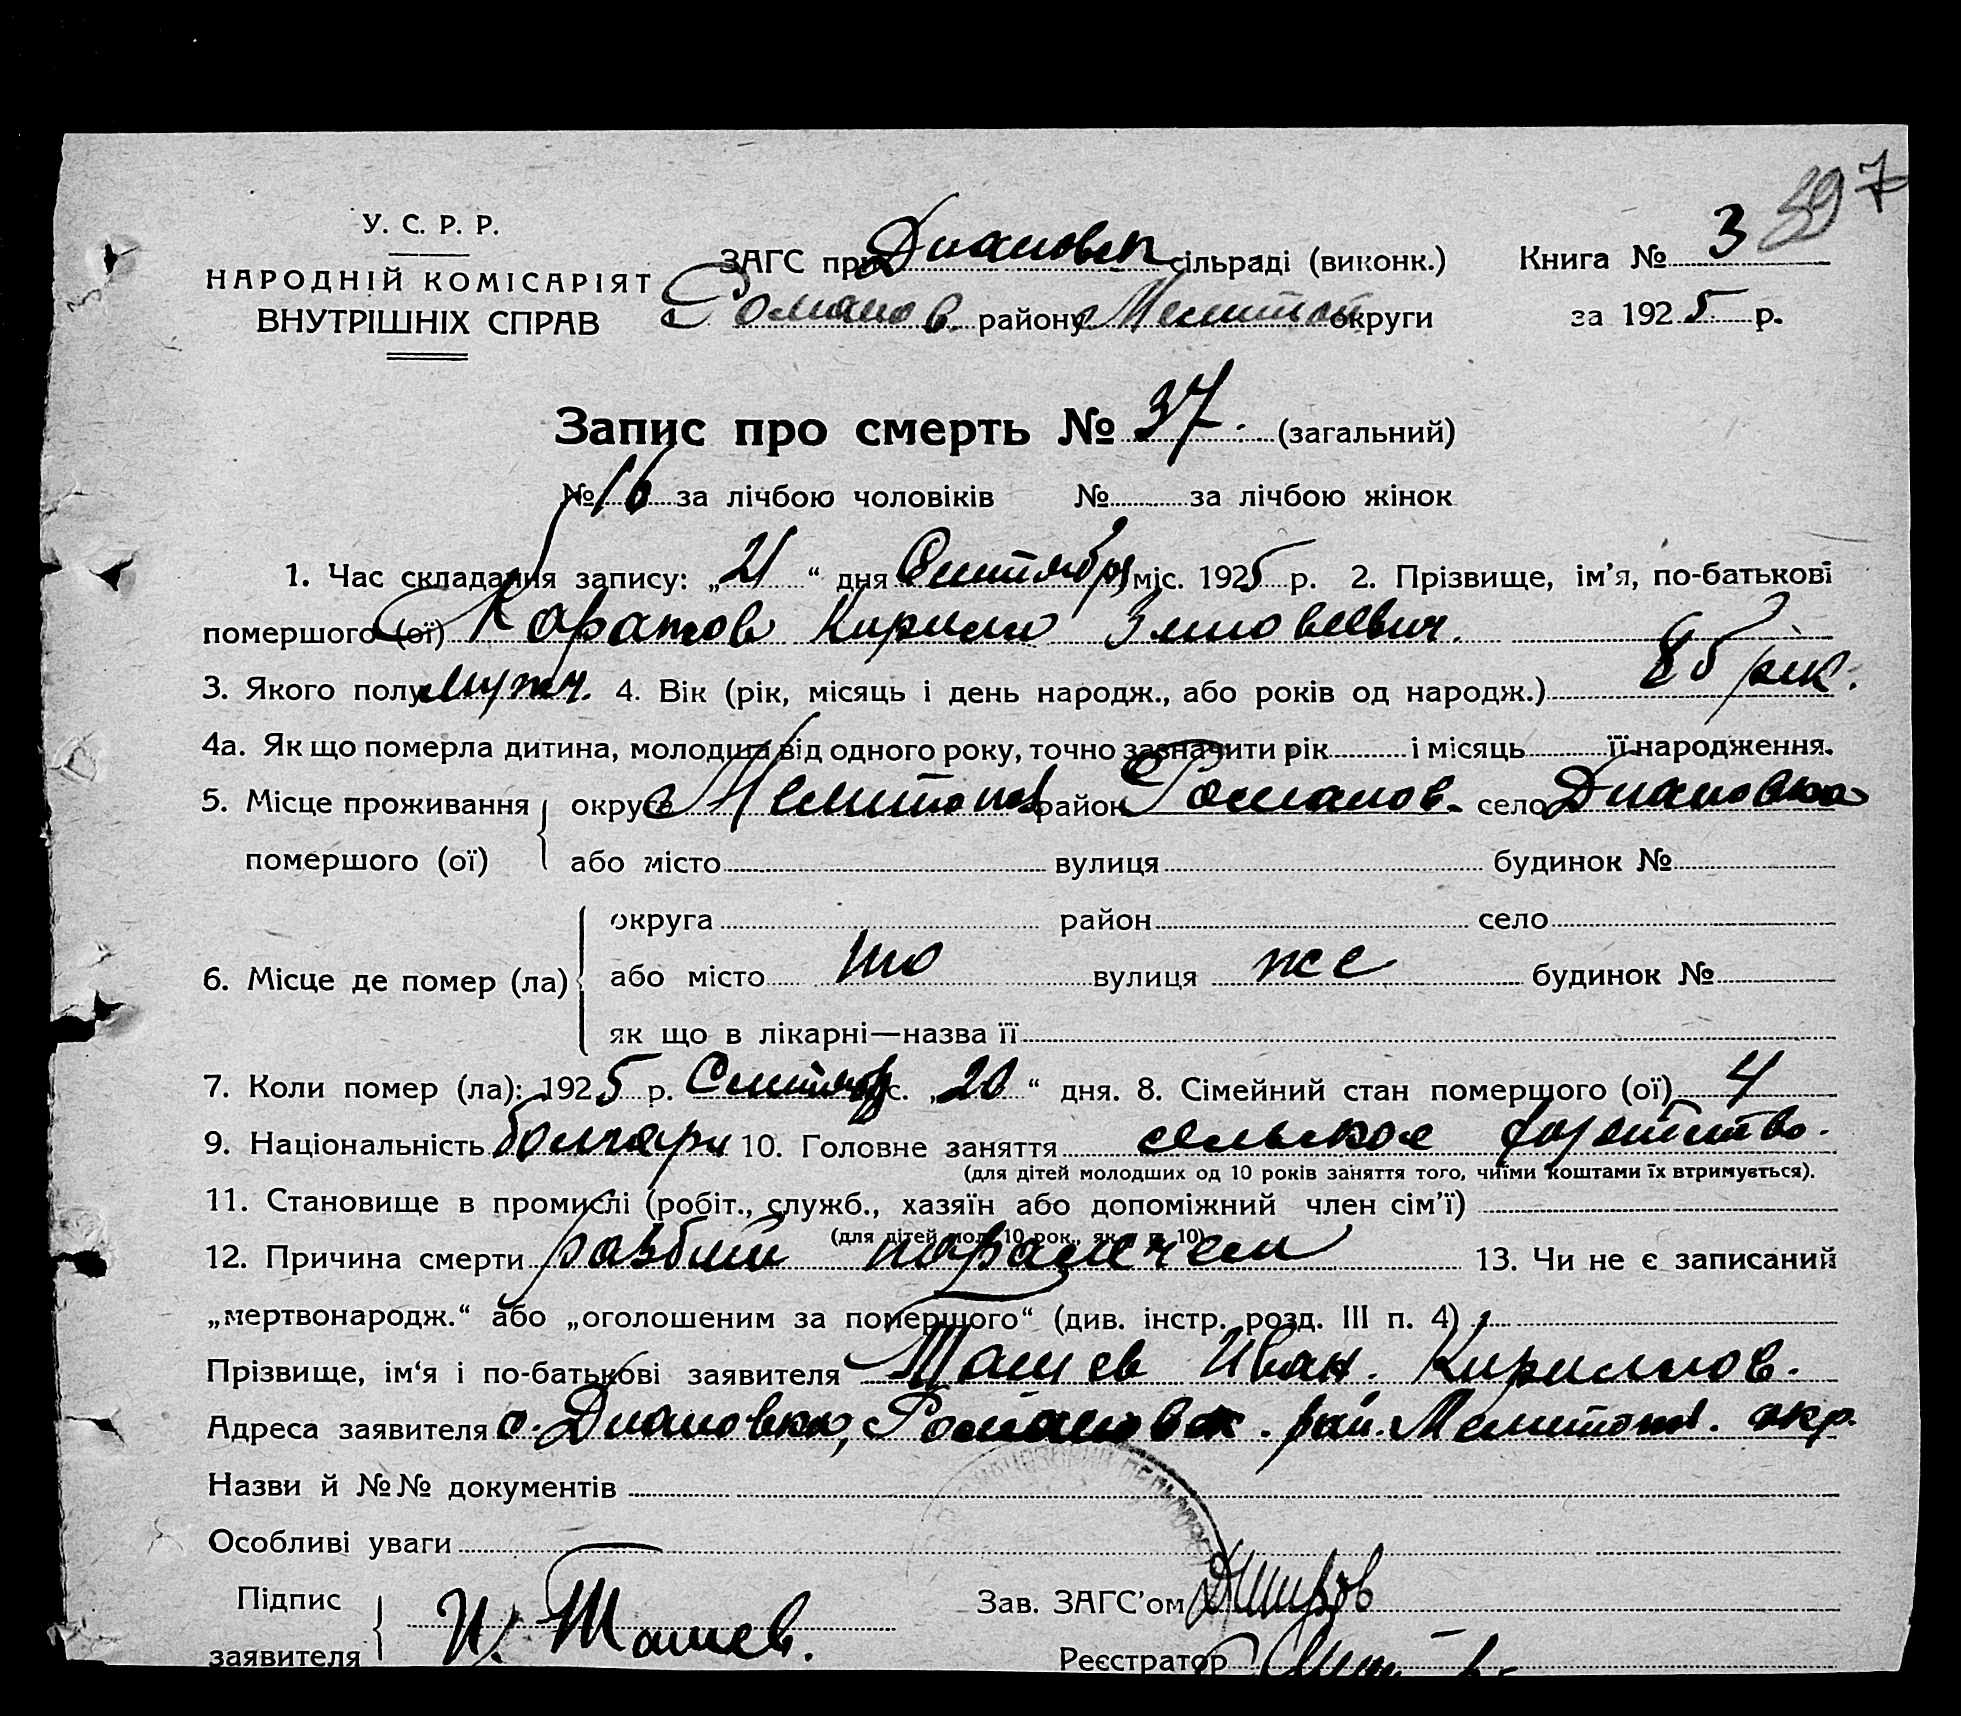 397
У. С. Р. Р.
НАРОДНІЙ КОМІСАРІЯТ
ВНУТРІШНІХ СПРАВ
ЗАГС при Диановск сільраді (виконк.)
Романов. району Мелитоп округи
Книга № 3
за 1925 р.
Запис про смерть № 37. (загальний)
№ 16 за лічбою чоловіків № за лічбою жінок
1. Час складання запису: „21“ дня Сентября міс. 1925 р. 2. Прізвище, ім’я, по-батькові
помершого (ої) Кирило Зиновиевич.
3. Якого полу мужч. 4. Вік (рік, місяць і день народж., або років од народж.) 85 рік.
4а. Як що померла дитина, молодша від одного року, точно зазначити рік і місяць її народження.
5. Місце проживання помершого (ої) округа Мелитопол район Романов. село Диановка
або місто вулиця будинок №
6. Місце де помер (ла) округа район село
або місто то вулиця же будинок №
як що в лікарні—назва її
7. Коли помер (ла): 1925 р. Сентябр міс. „20“ дня. 8. Сімейний стан помершого (ої) 4
9. Національність болгари 10. Головне заняття сельское
(для дітей молодших од 10 років заняття того, чиїми коштами їх втримується).
11. Становище в промислі (робіт., служб., хазяїн або допоміжний член сім’ї)
(для дітей мол. 10 рок., як п. 10)
12. Причина смерти разбит параличем 13. Чи не є записаний
„мертвонародж.“ або „оголошеним за помершого“ (див. інстр. розд. III п. 4)
Прізвище, ім‘я і по-батькові заявителя Ташев Иван. Кирилов.
Адреса заявителя с. Диановка, Романовск. рай. Мелитопол. окр.
Назви й №№ документів
Особливі уваги
Підпис заявителя И. Ташев.
Зав. ЗАГС’ом
Реєстратор